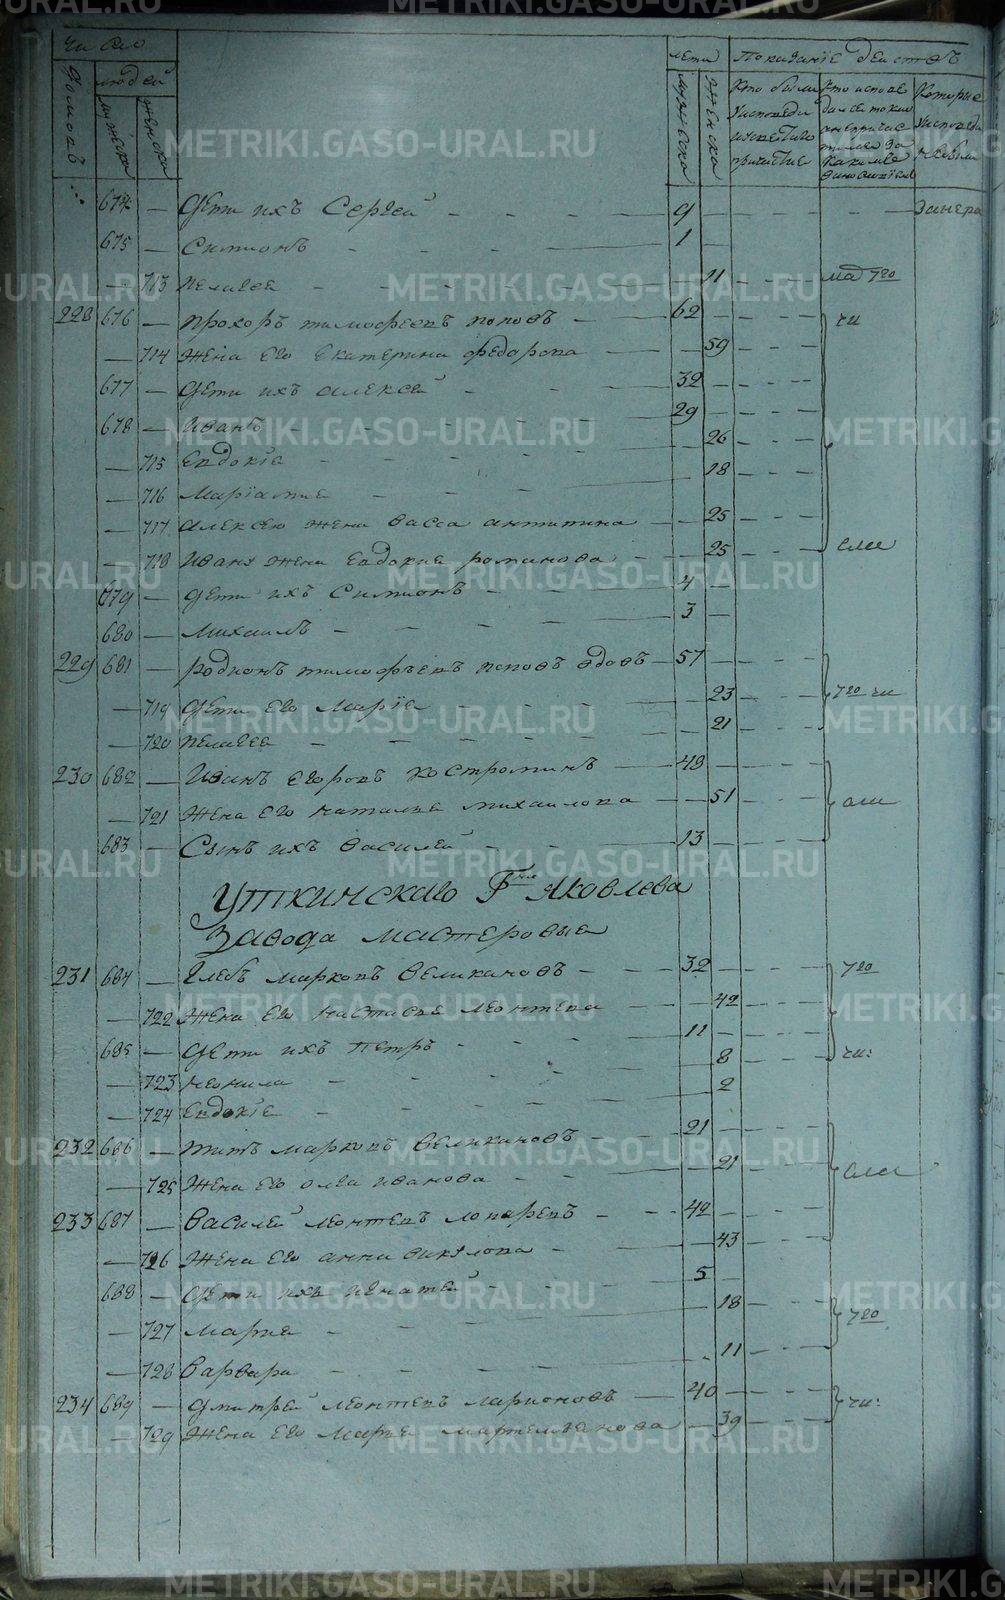 число лета показанїе действъ
домовъ людей мужеска женска мужеска женска
кто были
у исповеди
и святаго
причастия
674 — дети ихъ Сергей — 9 — занера
675 — Симионъ — 1 —
— 713 пелагея — 11
228 676 — прохоръ тимофеевъ поповъ — 62 — чи
— 714 жена его екатерина федорова — 59
677 — дети ихъ алексей — 32
678 — Иванъ — 29
— 715 Евдокїя — 26
— 716 Марїамна — 18
— 717 алексею жена васса антипина — 25
— 718 Ивану жена Евдокия романова — 25
679 — дети ихъ Симионъ — 4 —
680 — михаилъ — 3 —
229 681 — родионъ тимофеевъ поповъ вдовъ — 57
— 719 дети его марїя — 23
— 720 пелагея — 21
230 682 — Иванъ егоровъ костроминъ — 48
— 721 жена его наталья михаилова — 51
683 — Сынъ ихъ василей — 13
Уткинскаго Гна Яковлева
Завода мастеровыя
231 684 — Глебъ марковъ великановъ — 32
— 722 жена его настасья леонтева — 42
685 — дети ихъ петръ — 11 — чи:
— 723 неонила — 8
— 724 Евдокїя — 2
232 686 — титъ марковъ великановъ — 21
— 725 жена его олга иванова — 21
233 687 — василей леонтевъ лопаревъ — 42
— 726 жена его анна викулова — 43
688 — дети ихъ игнатей — 5
— 727 мария — 18
— 728 варвара — 11
234 689 — дмитрей леонтевъ ларионовъ — 40 — чи:
— 729 жена его марья мартемьянова — 39
METRIKI.GASO-URAL.RU